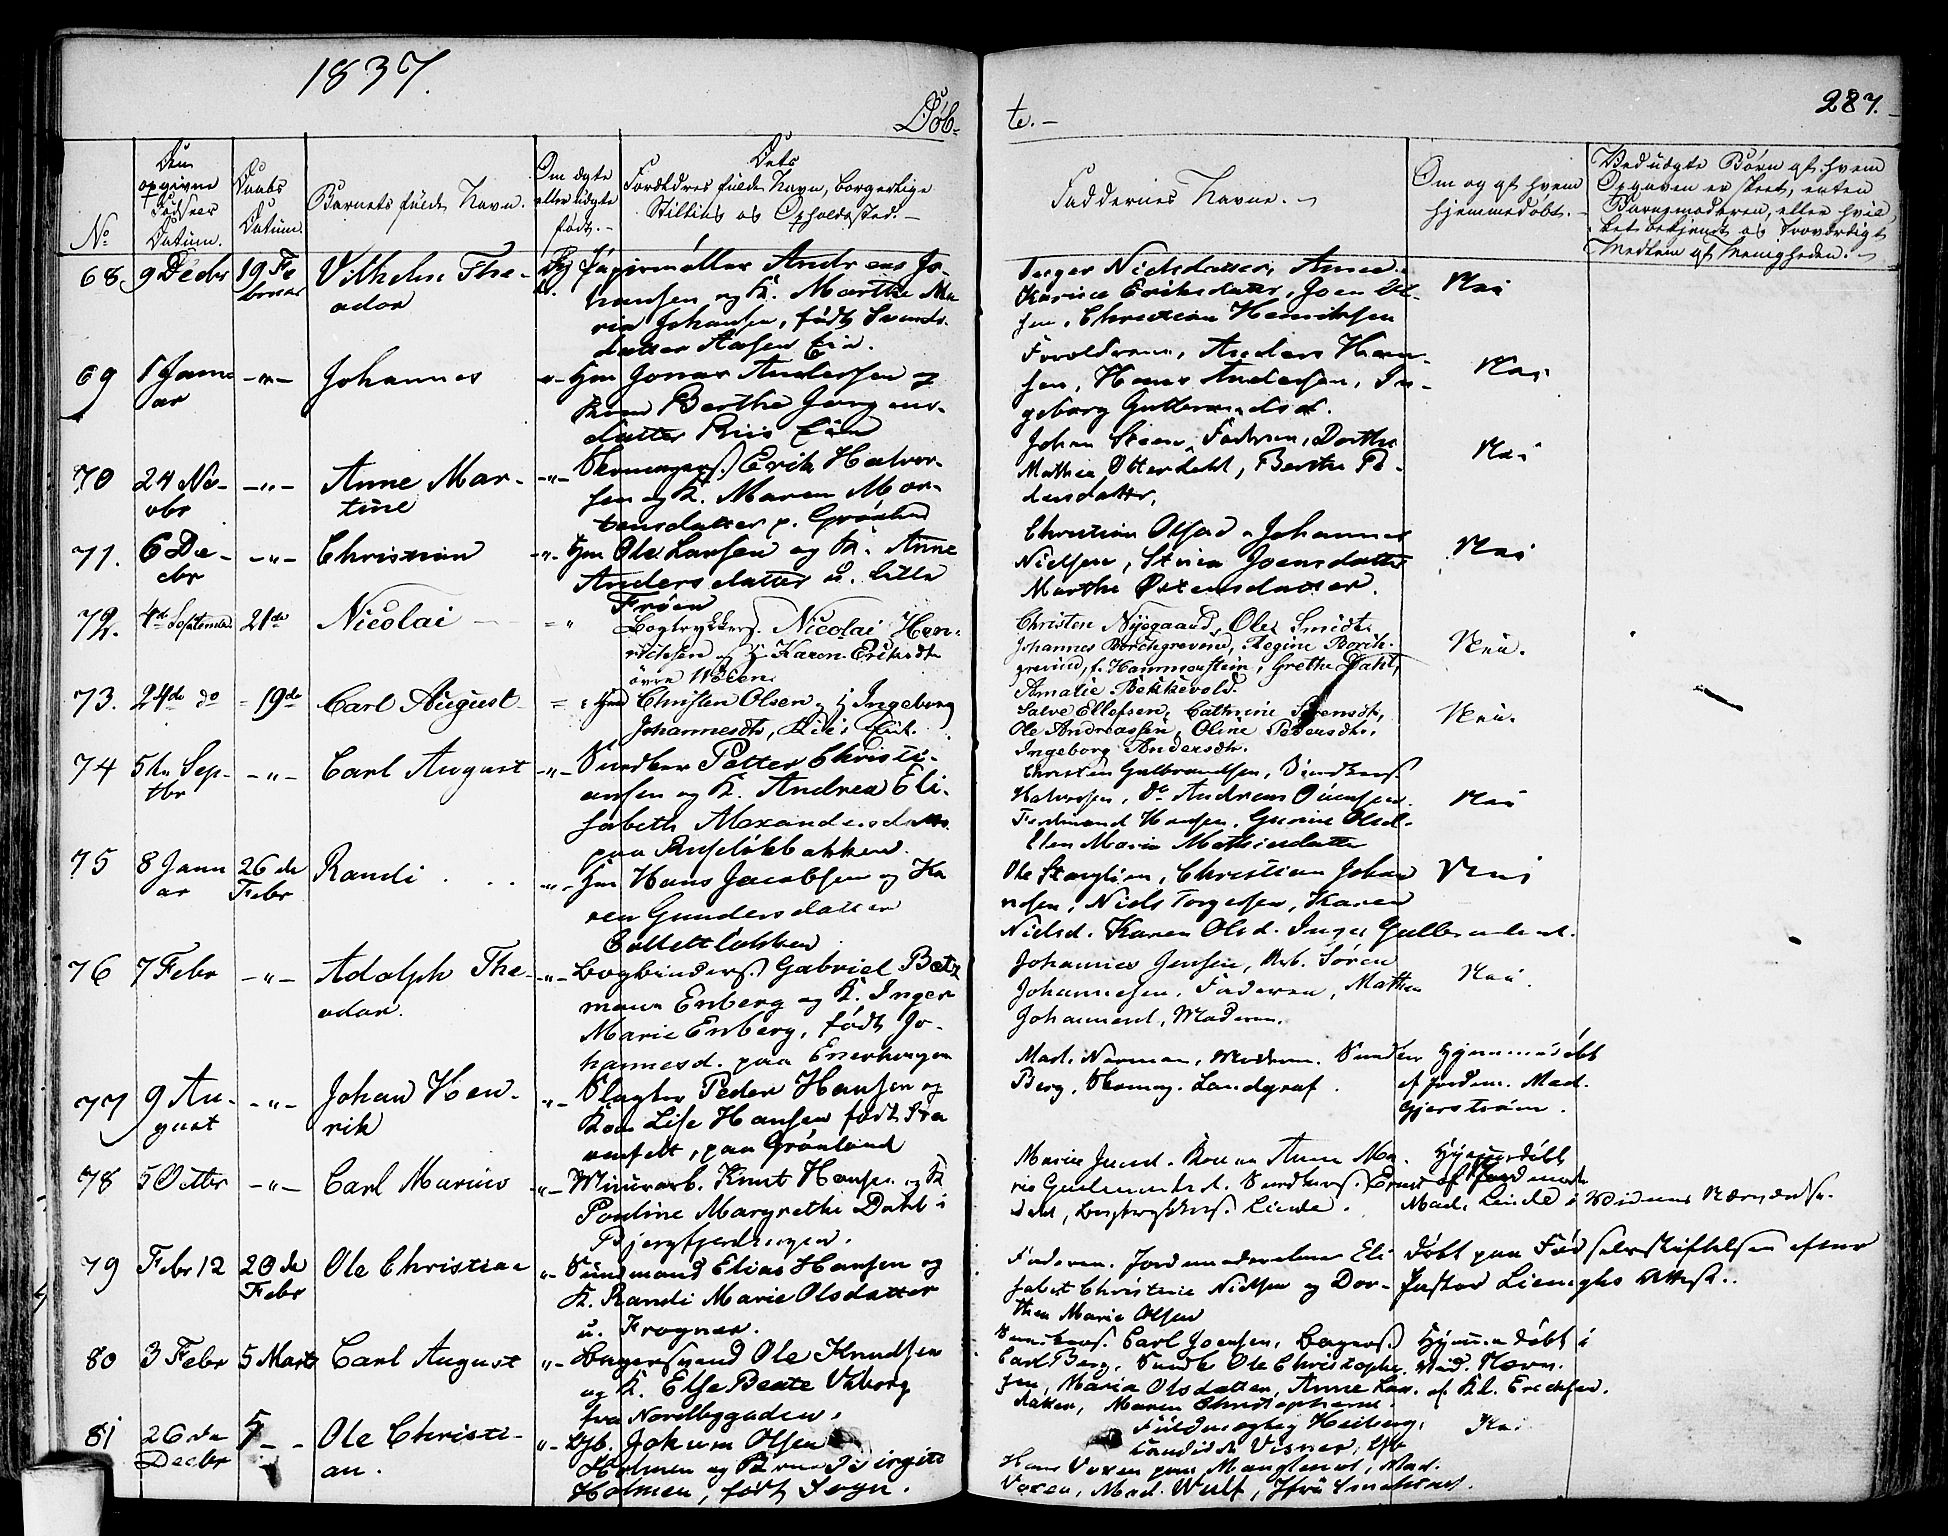 1837.
Døb-
te. -
287.
No
Den opgivne Fødsels Datum.
Daabs Datum.
Barnets fulde Navn.
Om ægte eller uægte født. -
Dets Forældres fulde Navn, borgerlige Stilling og Opholdssted. -
Faddernes Navne. -
Om og af hvem hjemmedøbt. -
Ved uægte Børn af hvem Opgaven er skeet, enten Barnemoderen, eller hvilket bekjendt og troværdigt Medlem af Menigheden. -
68. 9 Decbr 19 Fe- Vilhelm The-
bruar odor
Andreas Jo-
hansen og K. Marthe Ma-
ria Johansen, født Svends-
datter Aasen Eie.
Inger Nielsdatter, Anne
Karine Eriksdatter, Joen Ol-
sen, Christian Henriksen
Nei
69 1 Janu- -"- Johannes
ar
Hm Jonas Andersen og
Kone Berthe Jørgens-
datter Riis Eie
Forældrene, Anders Han-
sen, Hans Andersen, In-
geborg Gulbrandsd.
Nei
70 24 No- -"- Anne Mar-
vbr tine
Erik Halvor-
sen og K. Maren Mor-
tensdatter p. Grønland
Johan Steen, Faderen, Dorthe
Mathea Otterdahl, Berthe Pe-
dersdatter,
Nei
71. 6 De- -"- Christian
cbr
-"- Hm Ole Larsen og K. Anne
Andersdatter u. Lille
Frøen
Christian Olsen, Johannes
Nielsen, Joensdatter
Marthe Østensdatter.
Nei
72. 4de September 21de Nicolai
Bogtrykkers. Nicolai Hen-
richsen og K. Karen Eriksdt.
øvre Volden.
Christen Nysgaard, Ole Smidt,
Johannes Borchgrevind, Regine Borch-
grevind, f. Hammerstein, Grethe Dahl,
Amalie Bekkevold.
Nei.
73. 24de do - 19de Carl August
Hm Christen Olsen og K Ingeborg
Johannesdt, Riis Eie.
Salve Ellefsen, Cathrine Sørensdt,
Ole Andreassen, Oline Pedersdt.,
Ingeborg Andersdt.
Nei.
74 5te Sep- -"- Carl August
tbr
-"- Snedker Petter Christi-
ansen og K. Andrea Eli-
sabeth Alexandersdatter
paa Ruseløkbakken.
Christen Gulbrandsen, Snedkers.
Halvorsen, do Andreas Svensen
Ferdinand Hansen, Gurine Olsd.
Elen Maria Mathisdatter
Nei
75 8 Janu 26de Randi
ar Febr
-"- Hm Hans Jacobsen og Ka-
ren Gundersdatter
Collettløkken
Christian Johan
nesen, Niels Torgersen, Karen
Nielsd. Karen Olsd. Inger Gulbrandsd.
Nei
76 7 Febr -"- Adolph The-
odor.
-"- Bogbinders. Gabriel Betz
mann Enberg og K. Inger
Marie Enberg, født Jo-
hannesd. paa Enerhaugen
Johannes Jensen, Arb. Søren
Johannesen, Faderen, Mathea
Johannesd, Moderen.
Nei.
77 9 Au- -"- Johan Hen-
gust rik
-"- Slagter Peder Hansen og
Kone Lise Hansen født
paa Grønland
Mad. Norman, Moderen. Snedker
Berg, Skomag. Landgraf.
Hjemmedøbt
af Jordem. Mad.
Gjerstrøm.
78 5 Octbr -"- Carl Marius
-"- Murarb. Knut Hansen og K
Pouline Margrethe Dahl i
Pjerfjerdingen.
Anne Ma-
Dahl, Bogtrykkers. Linde.
Hjemmedøbt
Mad. Linde i Vidners Nærværelse.
79 Febr 12 20de Ole Christian
Febr
-"- Elias Hansen og
K. Randi Marie Olsdatter
u. Frogner.
Faderen. Jordemoderelever Eli-
sabet Christine Nielsen og Dor-
thea Marie Olsen
Døbt paa Fødselsstiftelsen efter
Pastor Attest.
80 3 Febr 5 Marts Carl August
-"- Bagersvend Ole Knudsen
og K. Else Beate Viborg
fra Nordbygaden.
Snedkers. Carl Joensen, Bagers.
Carl Berg, Snedker Ole Christophe
sen, Maria Olsdatter, Anne Lar
Maren Christophersd.
Hjemmedøbt i
Vid. Nærv.
af Kl. Ericksen.
81 26de 5 - Ole Christi-
Decbr an.
-"- Jokum Olsen
Holmen og Kone Birgite
Holmen, født Sogn.
Fuldmægtig Heiberg,
Candidat Visner,
Hans Voxen paa Manglerud, Mad.
Voxen, Mad. Wulf, Jfru
Nei